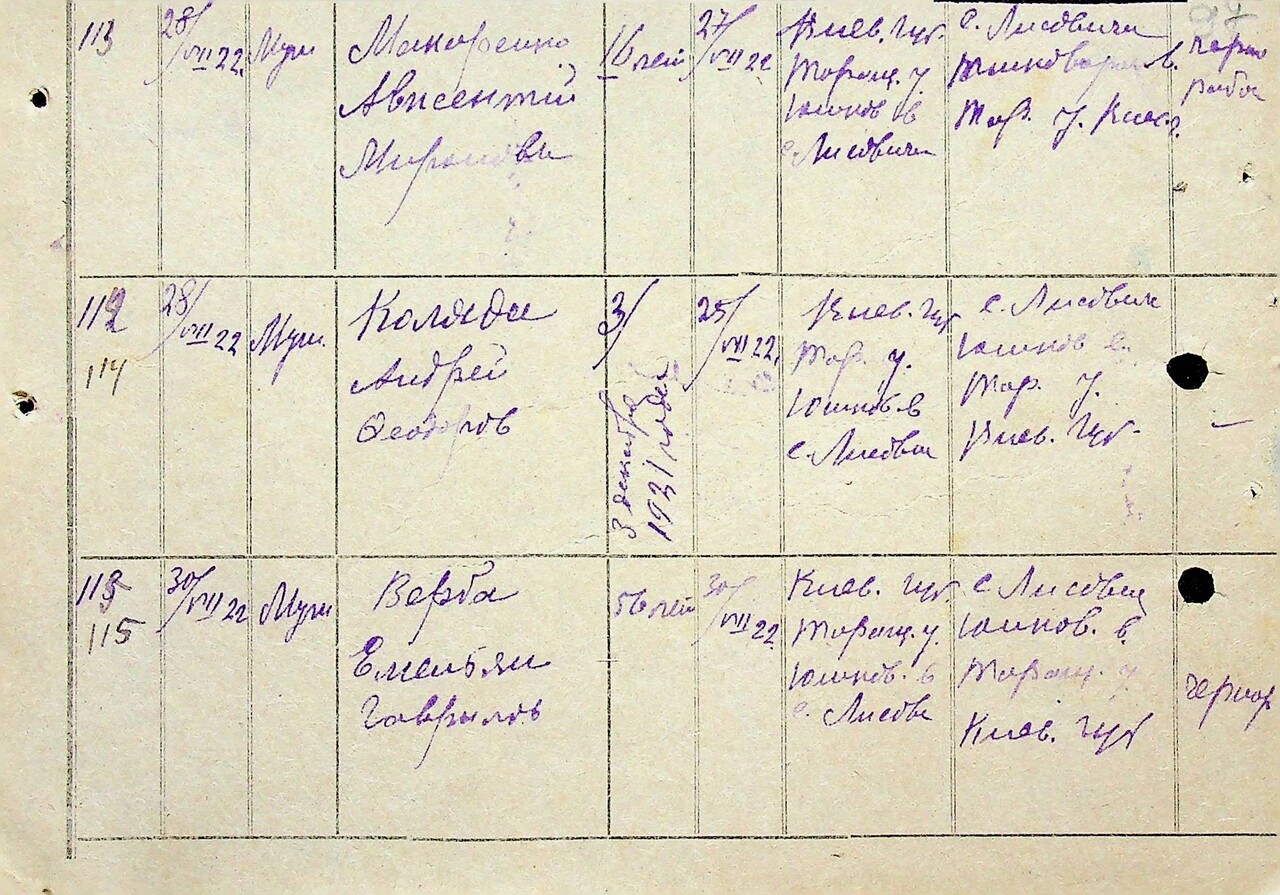 97
113
28/VII 22
Муж
Макаренко
Авксентий
Миронов
16 лет
27/VII 22
Киев. губ.
Таращ. у.
Юшков в
с Лисович
с. Лисовичи
в.
Тар. у. Киев г.
черно
рабоч
112
114
28/VII 22
Муж.
Коляда
Андрей
Феодоров
3/
3 декабря
1921 года
25/VII 22.
Киев. губ
Тар. у.
Юшков в
с. Лисович
с. Лисович
Юшков в.
Тар. у.
Киев. губ.
-
113
115
30/VII 22
Муж
Верба
Емельян
Гаврилов
56 лет
30/VII 22
Киев. губ.
Таращ. у
Юшков. в
с. Лисов
с Лисович
Юшков. в.
Таращ. у
Киев. губ
чернор